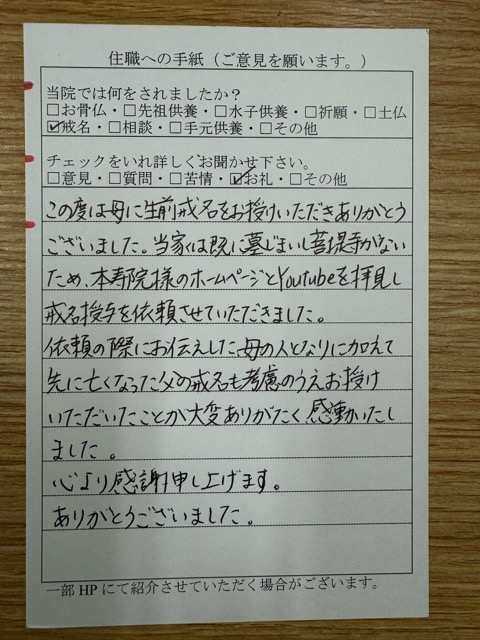 住職への手紙（ご意見を願います。）
当院では何をされましたか？
□お骨仏・□先祖供養・□水子供養・□祈願・□土仏
☑戒名・□相談・□手元供養・□その他
チェックをいれ詳しくお聞かせ下さい。
□意見・□質問・□苦情・☑お礼・□その他
この度は母に生前戒名をお授けいただきありがとう
ございました。当家は既に墓じまいし菩提寺がない
ため、本寿院様のホームページとYoutubeを拝見し
戒名授与を依頼させていただきました。
依頼の際にお伝えした母の人となりに加えて
先に亡くなった父の戒名も考慮のうえお授け
いただいたことが大変ありがたく感動いたし
ました。
心より感謝申し上げます。
ありがとうございました。
一部 HP にて紹介させていただく場合がございます。